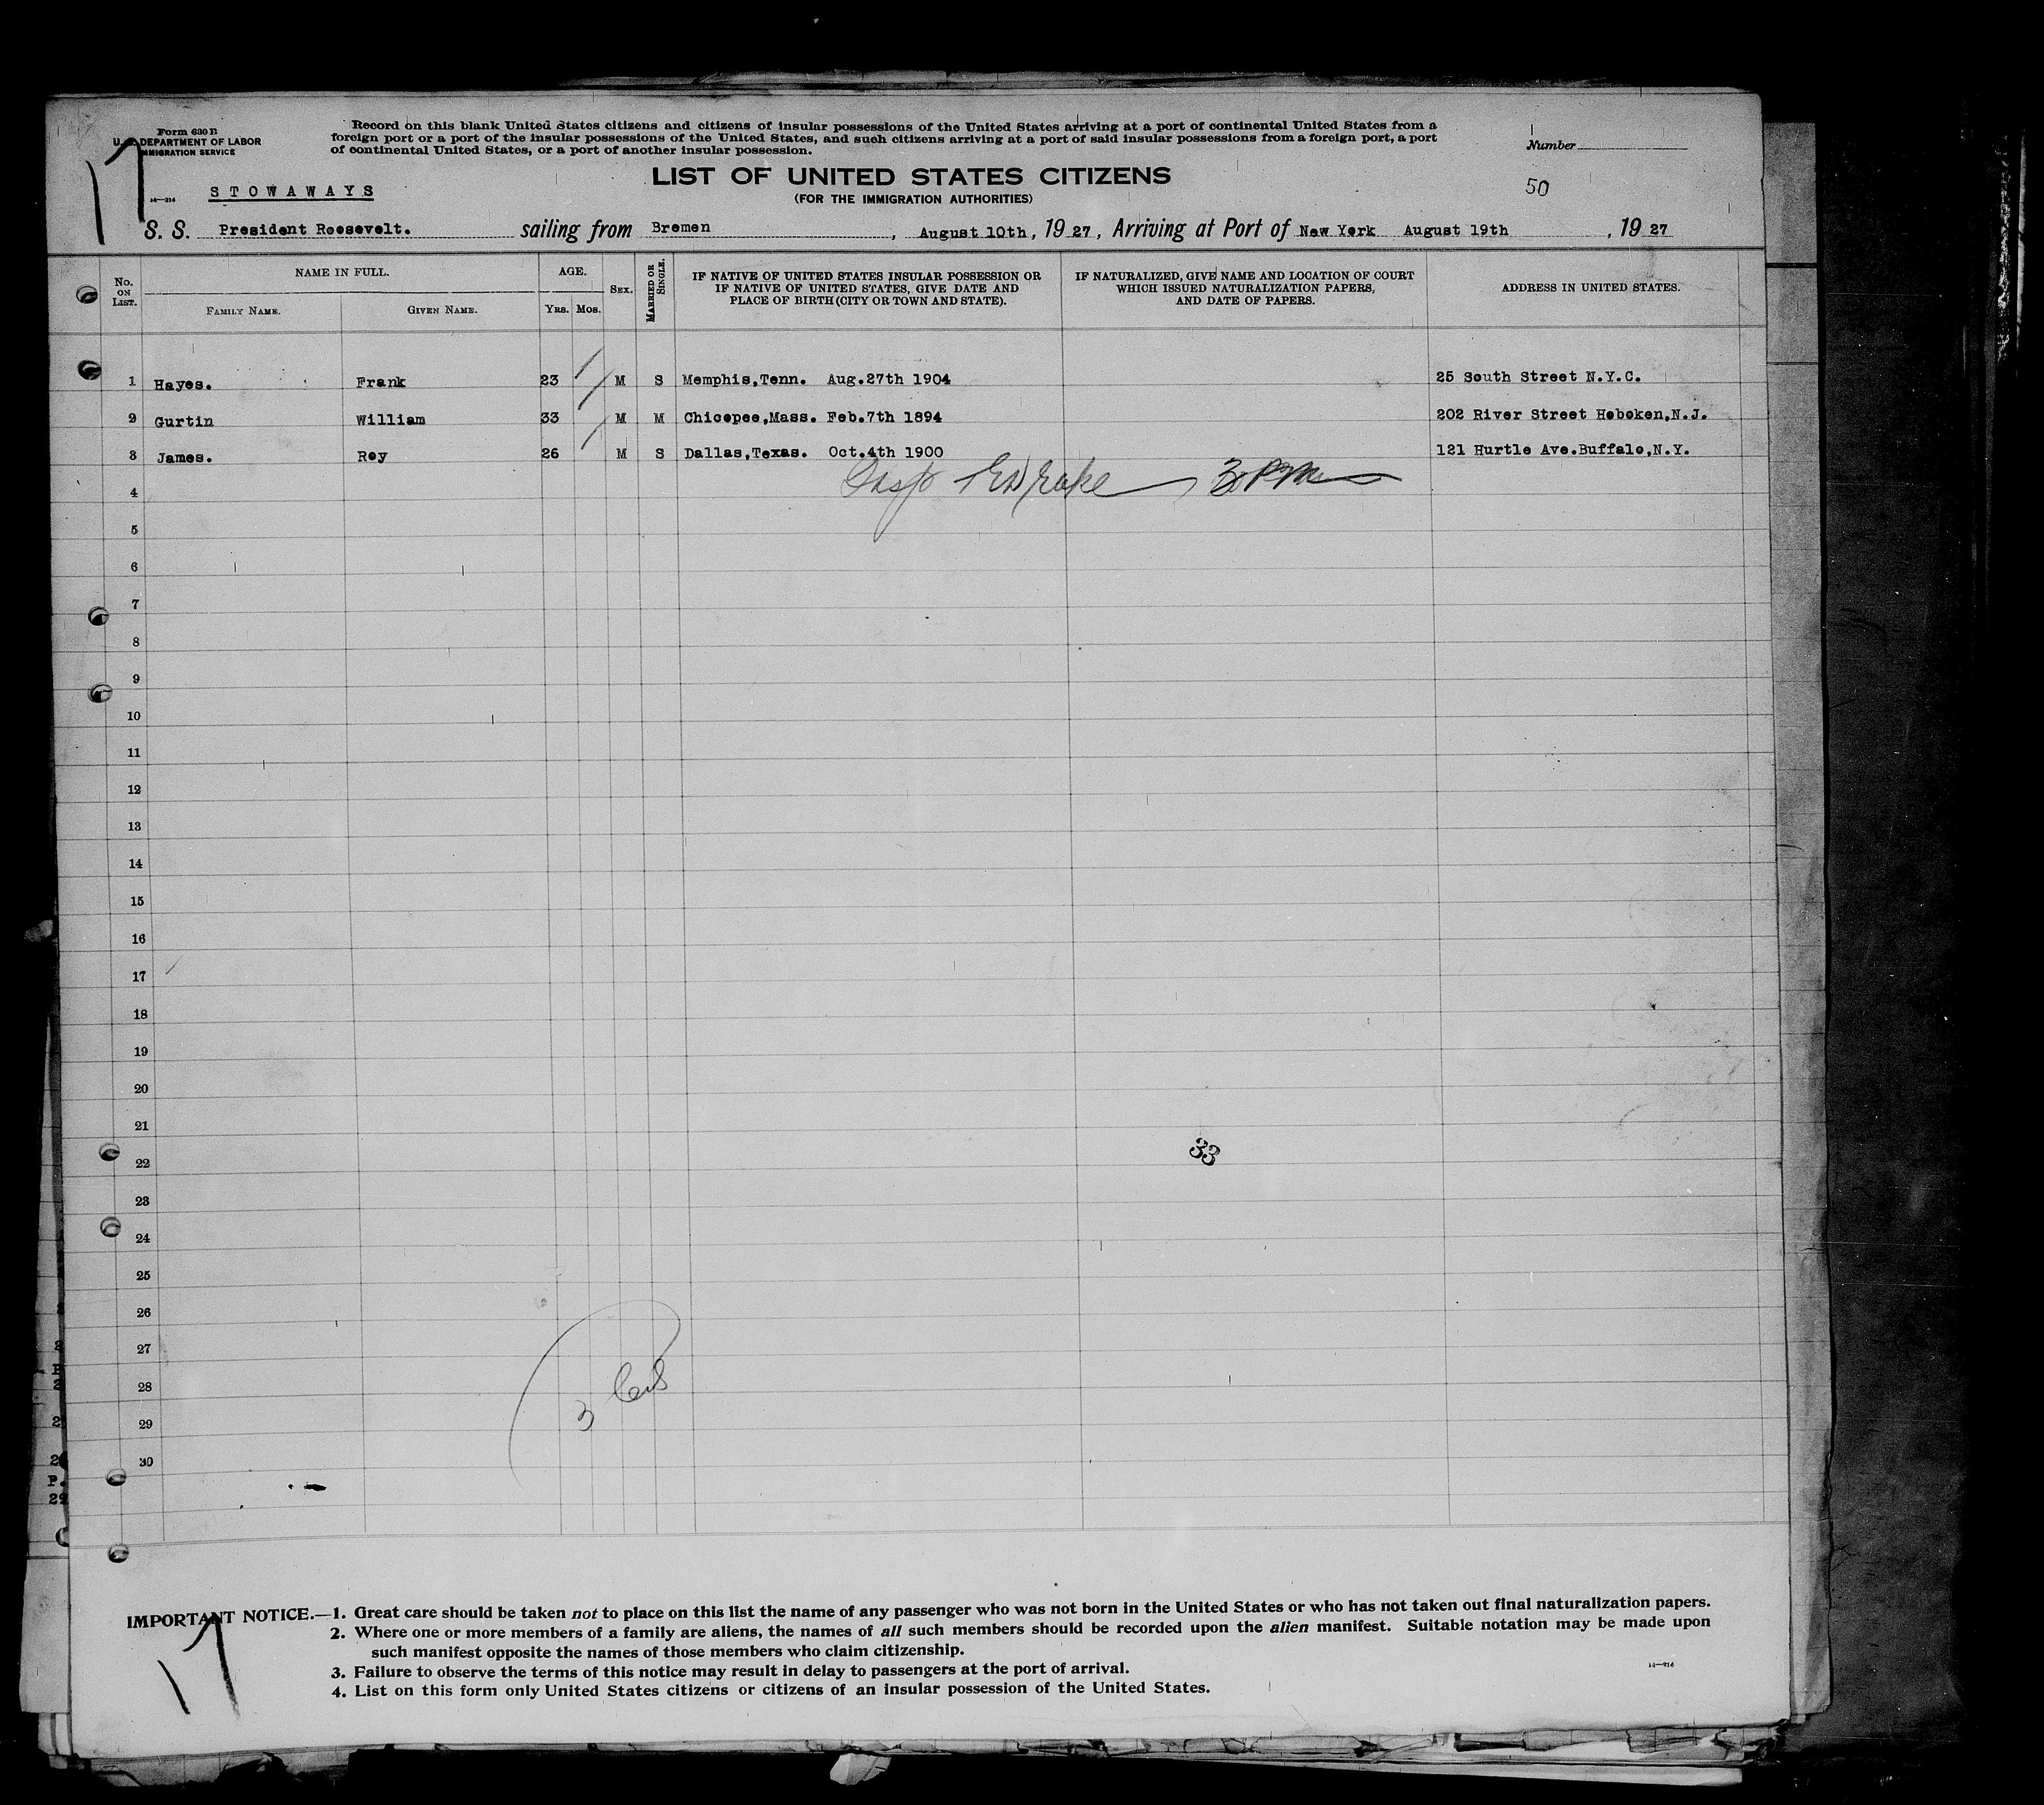 Form 630 B
U. S. DEPARTMENT OF LABOR
IMMIGRATION SERVICE
Record on this blank United States citizens and citizens of insular possessions of the United States arriving at a port of continental United States from a
foreign port or a port of the insular possessions of the United States, and such citizens arriving at a port of said insular possessions from a foreign port, a port
of continental United States, or a port of another insular possession.
Number
17
14—214
STOWAWAYS
LIST OF UNITED STATES CITIZENS
(FOR THE IMMIGRATION AUTHORITIES)
50
S. S. President Roosevelt. sailing from Bremen, August 10th, 1927, Arriving at Port of New York August 19th, 1927
No. ON LIST. NAME IN FULL. FAMILY NAME. GIVEN NAME. AGE. YRS. MOS. SEX. MARRIED OR SINGLE. IF NATIVE OF UNITED STATES INSULAR POSSESSION OR IF NATIVE OF UNITED STATES, GIVE DATE AND PLACE OF BIRTH (CITY OR TOWN AND STATE). IF NATURALIZED, GIVE NAME AND LOCATION OF COURT WHICH ISSUED NATURALIZATION PAPERS, AND DATE OF PAPERS. ADDRESS IN UNITED STATES.
1 Hayes. Frank 23 M S Memphis,Tenn. Aug.27th 1904 25 South Street N.Y.C.
2 Gurtin William 33 M M Chicopee,Mass. Feb.7th 1894 202 River Street Hoboken,N.J.
3 James. Roy 26 M S Dallas,Texas. Oct.4th 1900 121 Hurtle Ave.Buffalo,N.Y.
4 Insp Drake 3 PM
5
6
7
8
9
10
11
12
13
14
15
16
17
18
19
20
21
22 33
23
24
25
26
27
28
29 3
30
IMPORTANT NOTICE.—1. Great care should be taken not to place on this list the name of any passenger who was not born in the United States or who has not taken out final naturalization papers.
2. Where one or more members of a family are aliens, the names of all such members should be recorded upon the alien manifest. Suitable notation may be made upon
such manifest opposite the names of those members who claim citizenship.
3. Failure to observe the terms of this notice may result in delay to passengers at the port of arrival.
14—214
4. List on this form only United States citizens or citizens of an insular possession of the United States.
17